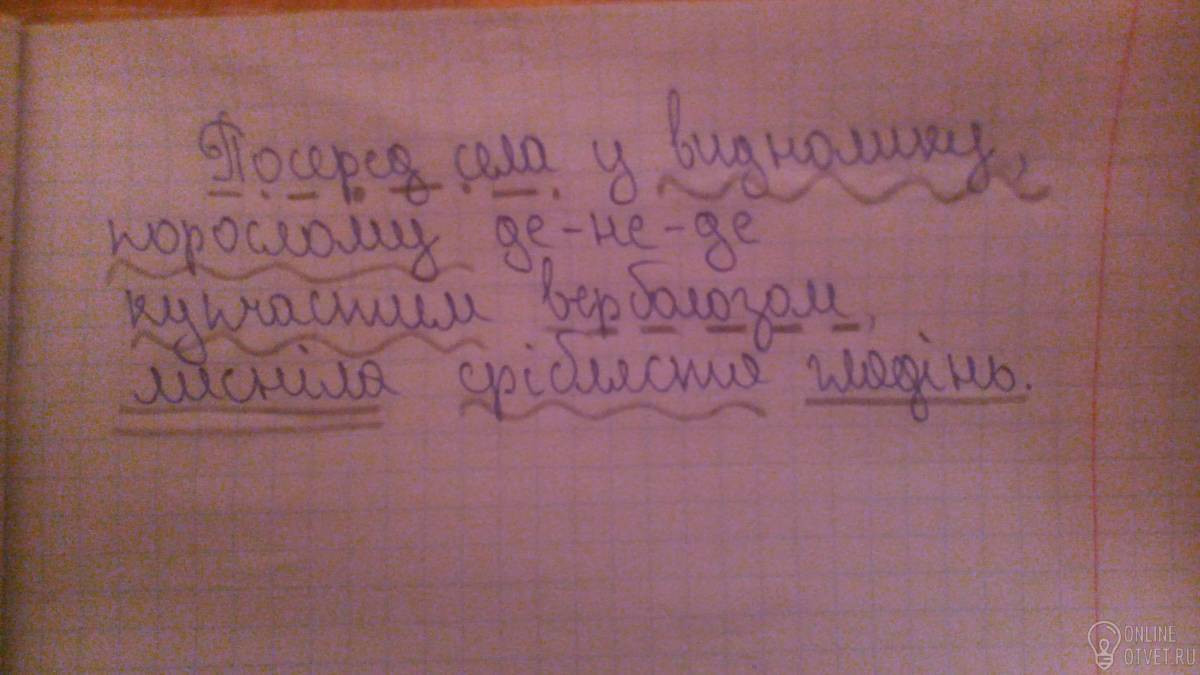 Посеред села у видномику,
порослому де-не-де
купчастим верболозом,
лисніла срібляста гладінь.
ONLINE
OTVET.RU